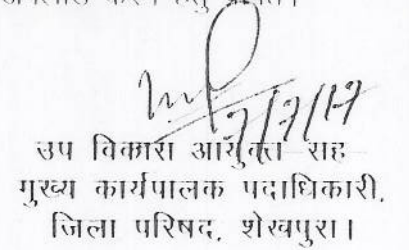 करने हेतु
7/7/17
उप विकास आयुक्त सह
मुख्य कार्यपालक पदाधिकारी,
जिला परिषद, शेखपुरा।